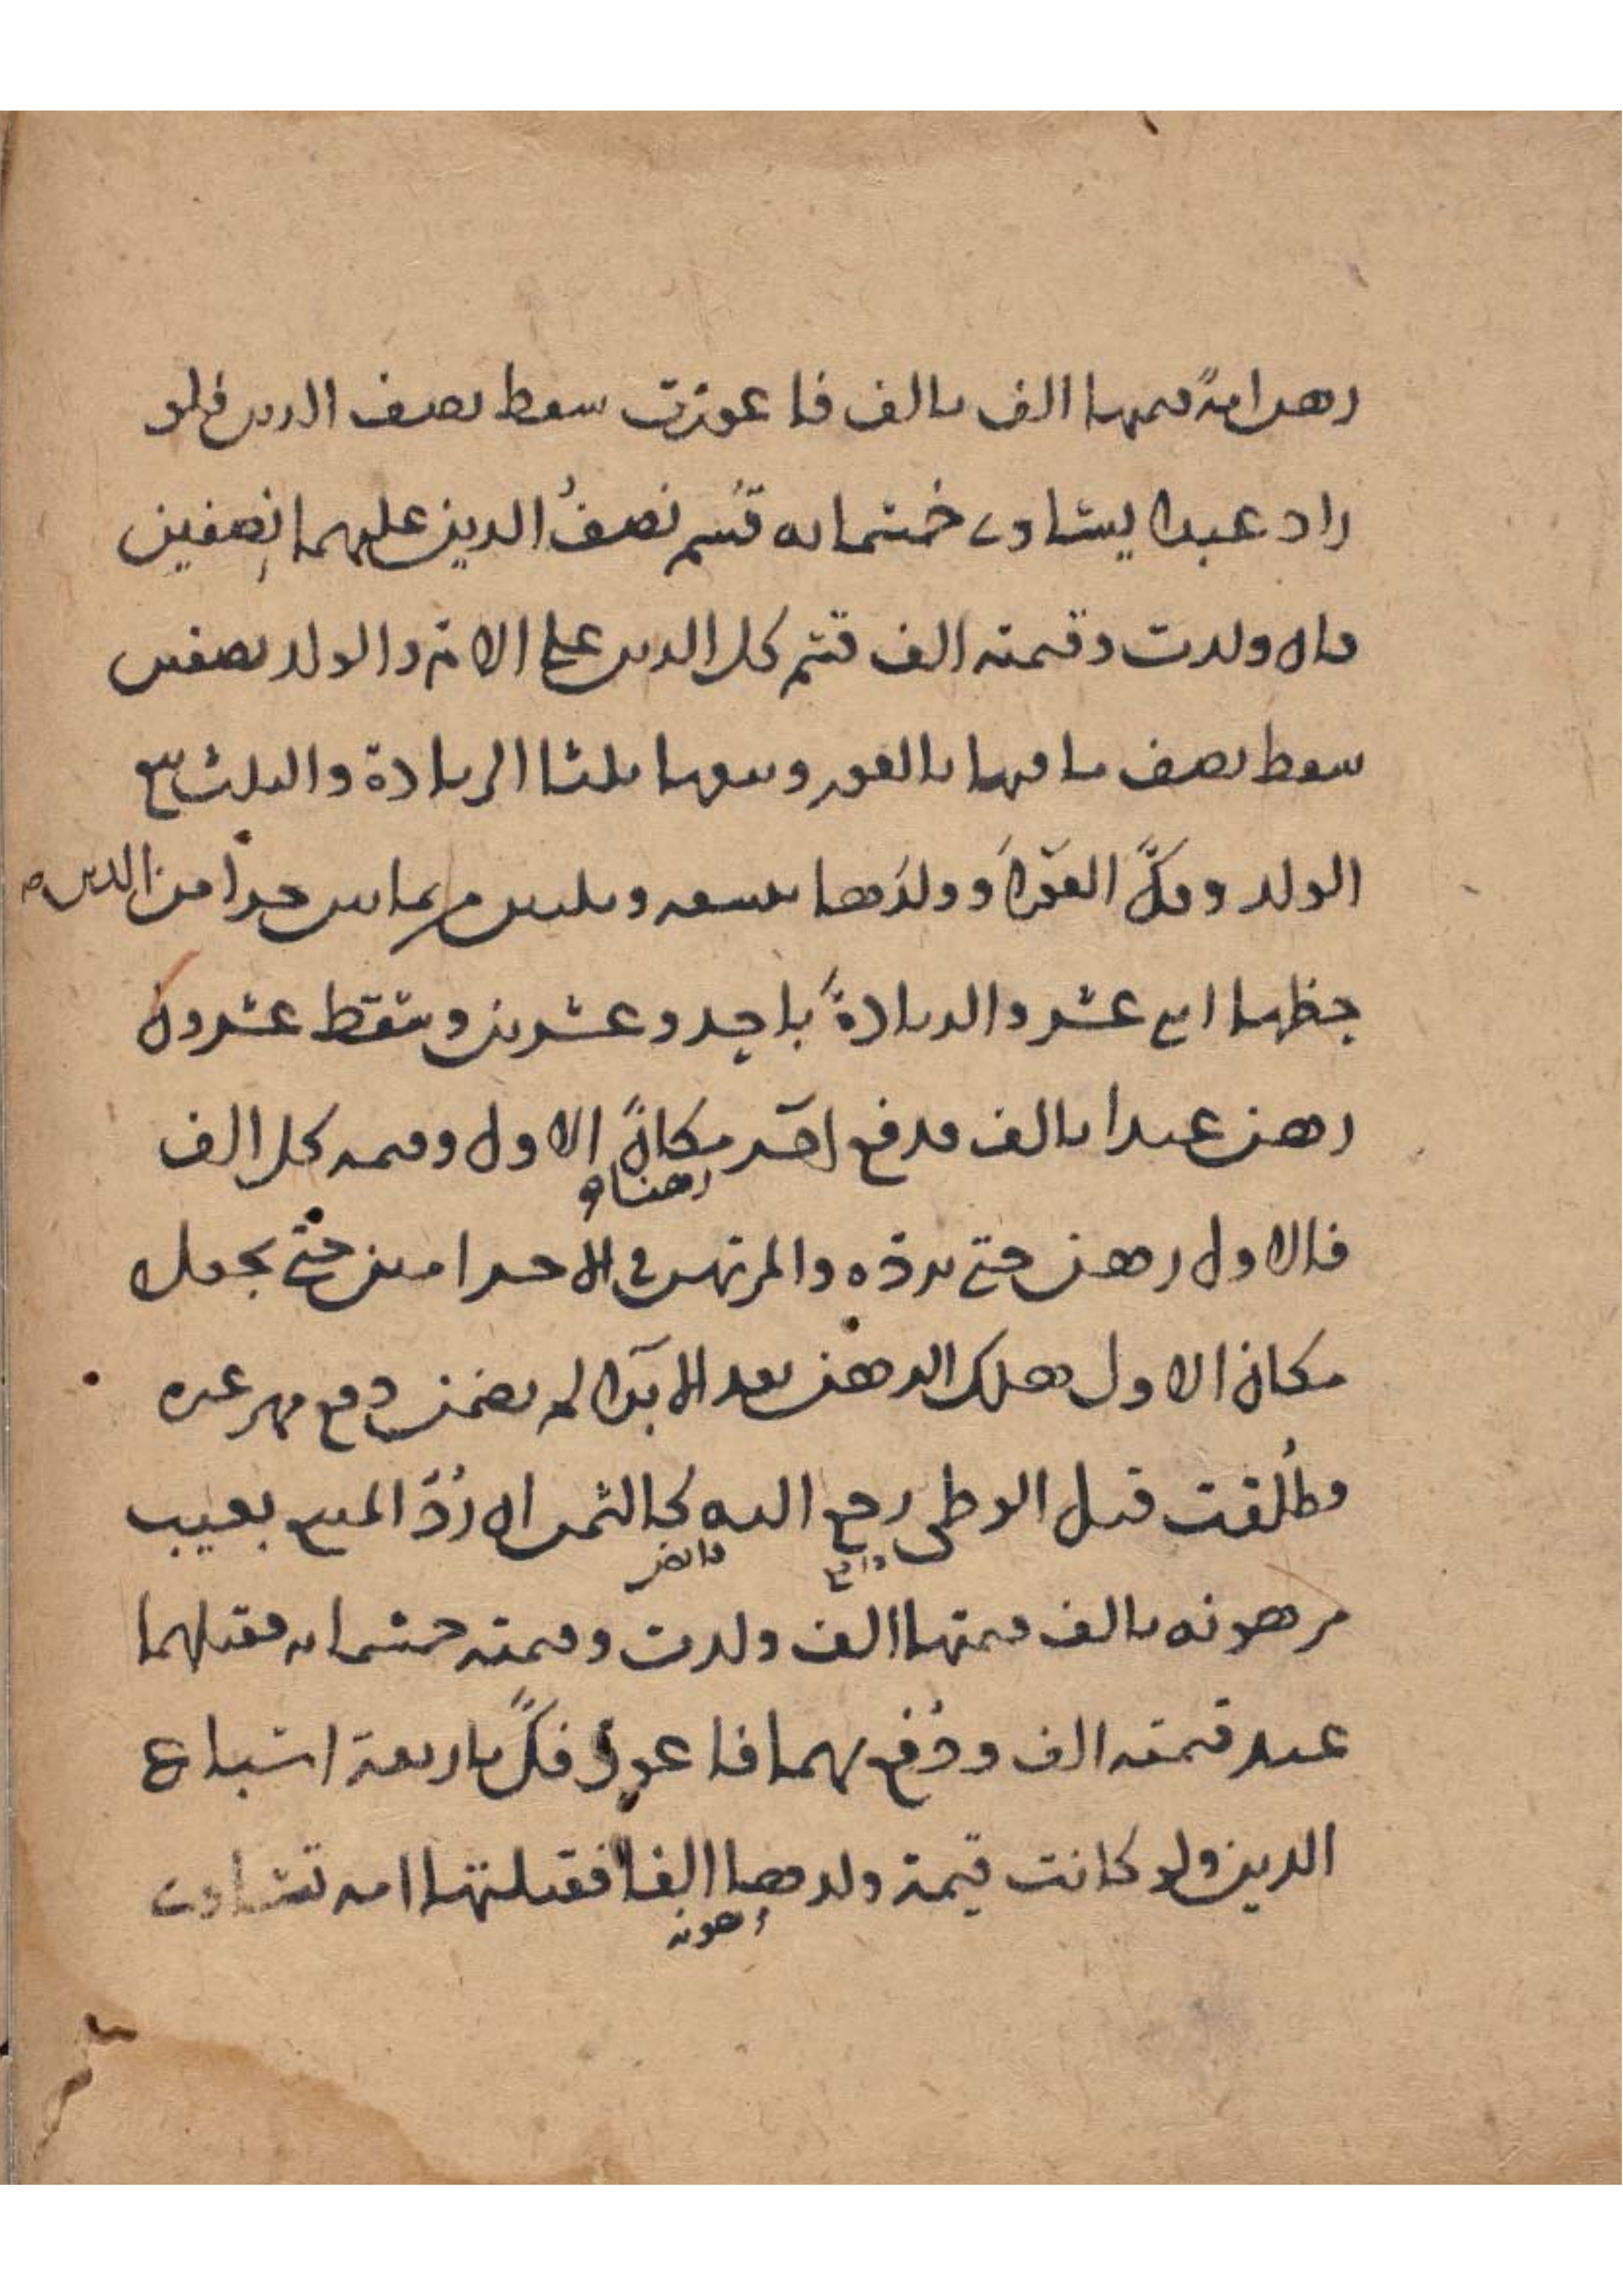 رهن امة قيمتها الف بالف فاعورت سقط نصف الدين فلو
زاد عبدا يساوي خمسمائه قسم نصف الدين عليهما نصفين
فان ولدت وقيمته الف قسم كل الدين على الام والولد نصفين
سقط نصف ما فيها بالعور ويتبعها ثلثا الزيادة والثلث يتبع
الولد وفك العوراء وولدها وثلثين من جزأ من الدين
حظها عشر والزيادة باحد وعشرين وسقط عشرون
رهن عبدا بالف فدفع اخر مكان الاول وقيمه كل الف
رهنا و
فالاول رهن حتى يرده والمرتهن في الاخر امين حتى يجعل
مكان الاول هلك الرهن بعد الابرا لم يضمن دفع مهر غيره
فطلقت قبل الوطى رجع اليه كالثمن ان رد المبيع بعيب
مرهونه بالف قيمتها الف ولدت وقيمته خمسمائه فقتلهما
عبد قيمته الف ودفع بهما فاعور فك باربعة اسباع
الدين ولو كانت قيمة ولدها الفا فقتلتها امه تساوت